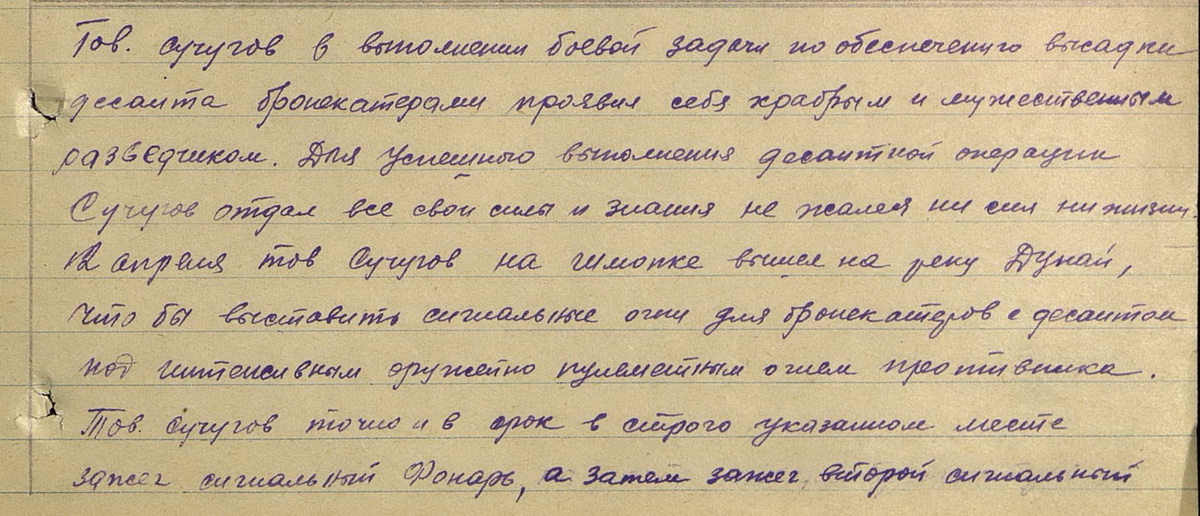 Тов. Сучугов в выполнении боевой задачи по обеспечению высадки
десанта бронекатерами проявил себя храбрым и мужественным
разведчиком. Для успешного выполнения десантной операции
Сучугов отдал все свои силы и знания не жалея ни сил ни жизни.
12 апреля тов Сучугов на шлюпке вышел на реку Дунай,
что бы выставить сигнальные огни для бронекатеров с десантом
под интенсивным оружейно пулеметным огнем противника.
Тов. Сучугов точно и в срок в строго указанном месте
зажег сигнальный Фонарь, а затем зажег второй сигнальный